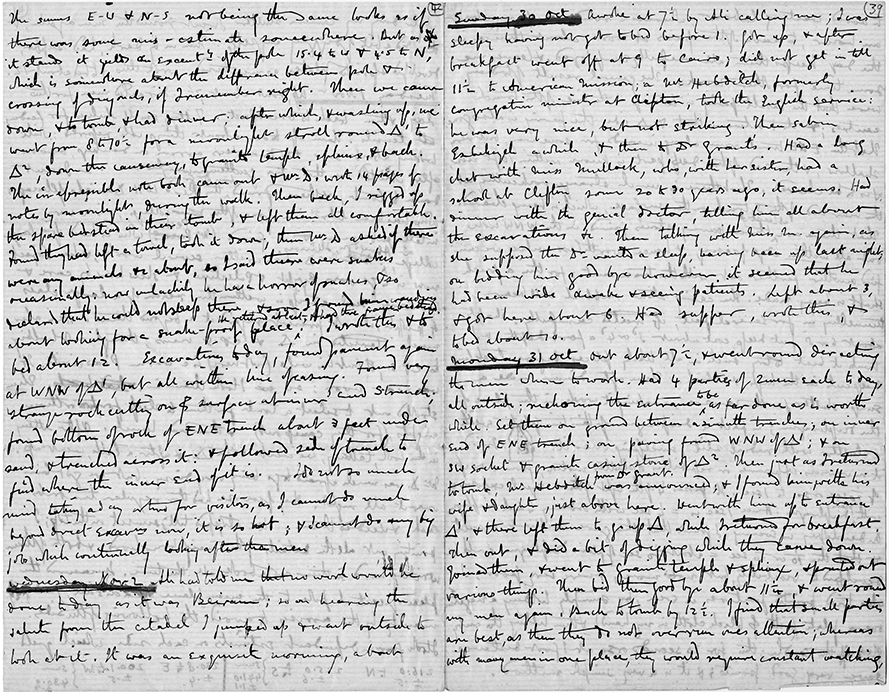 42
The sums E-W & N-S not being the same looks as if
there was some mis-estimate somewhere. But as
it stands it yields an excent.y of the pole 15.4 to W & 4.5 to N,
which is somewhere about the difference between pole &
crossing of diagonals, if I remember right. Then we came
down, & to tomb, & had dinner: after which, & washing up, we
went from 8 to 10½ for a moonlight stroll round Δ¹ to
Δ², down the causeway, to granite temple, sphinx, & back.
The irrepressible note book came out & Mr D. wrote 14 pages of
notes by moonlight, during the walk. Then back, I rigged up
the spare bedstead in their tomb, & left them all comfortable.
Found they had left a towel, took it down; then Mr D asked if there
were any animals &c about, so I said there were snakes
occasionally: now unluckily he has a horror of snakes, & so
declared that he could not sleep there, & so I
about looking for a snake-proof place, I wrote this & to
bed about 12. Excavations today, found pavement again
at WNW of Δ¹, but all within line of casing. Found very
strange rock cutting on surface at inner end of trench.
found bottom of rock of ENE trench about 3 feet under
sand, & trenched across it: & followed side of trench to
find where the inner end of it is. I do not so much
mind taking a day or two for visitors, as I cannot do much
beyond direct excavns now, it is so hot; & I cannot do any big
job while continually looking after the men
Wednesday Nov 2 Ali had told me that no work would be
done today, as it was Beiram; so on hearing the
salute from the citadel I jumped up & went outside to
look at it. It was an exquisite morning, about
39
Sunday 30 Oct Awoke at 7½ by Ali calling me; I was
sleepy having not got to bed before 1. Got up, & after
breakfast went off at 9 to Cairo; did not get in till
11½ to American Mission; a Mr Hebditch, formerly
congregatn minister at Clifton, took the English service:
he was very nice, but not striking. Then sat in
Esbekiyeh awhile & then to Dr Grant's. Had a long
chat with Miss Mullock, who, with her sister, had a
school at Clifton some 20 to 30 years ago, it seems. Had
dinner with the genial doctor, telling him all about
the excavations &c. Then talking with Miss M. again, as
she supposed the Dr wanted a sleep, having been up last night;
on bidding him good bye however it seemed that he
had been wide awake & seeing patients. Left about 3,
& got here about 6. Had supper, wrote this, &
to bed about 10.
Monday 31 Oct out about 7½, & went round directing
the men where to work. Had 4 parties of 2 men each to day,
all outside; reckoning the entrance to be as far done as is worth
while. Set them on ground between azimuth trenches; on inner
end of ENE trench; on paving found WNW of Δ¹; & on
SW socket & granite casing stone of Δ². Then just as I returned
to tomb Mr Hebditch from Dr Grant's was announced; & I found him with his
wife & daughter, just above here. Went with him up to entrance
Δ¹ & there left them to go up Δ, while I returned for breakfast
Then out, & did a bit of digging while they came down.
Joined them, & went to granite temple & sphinx, & pointed out
various things. Then bid them good bye about 11½ & went round
my men again. Back to tomb by 12½. I find that small parties
are best as then they do not overrun ones attention; whereas
with many men in one place, they would require constant watching,